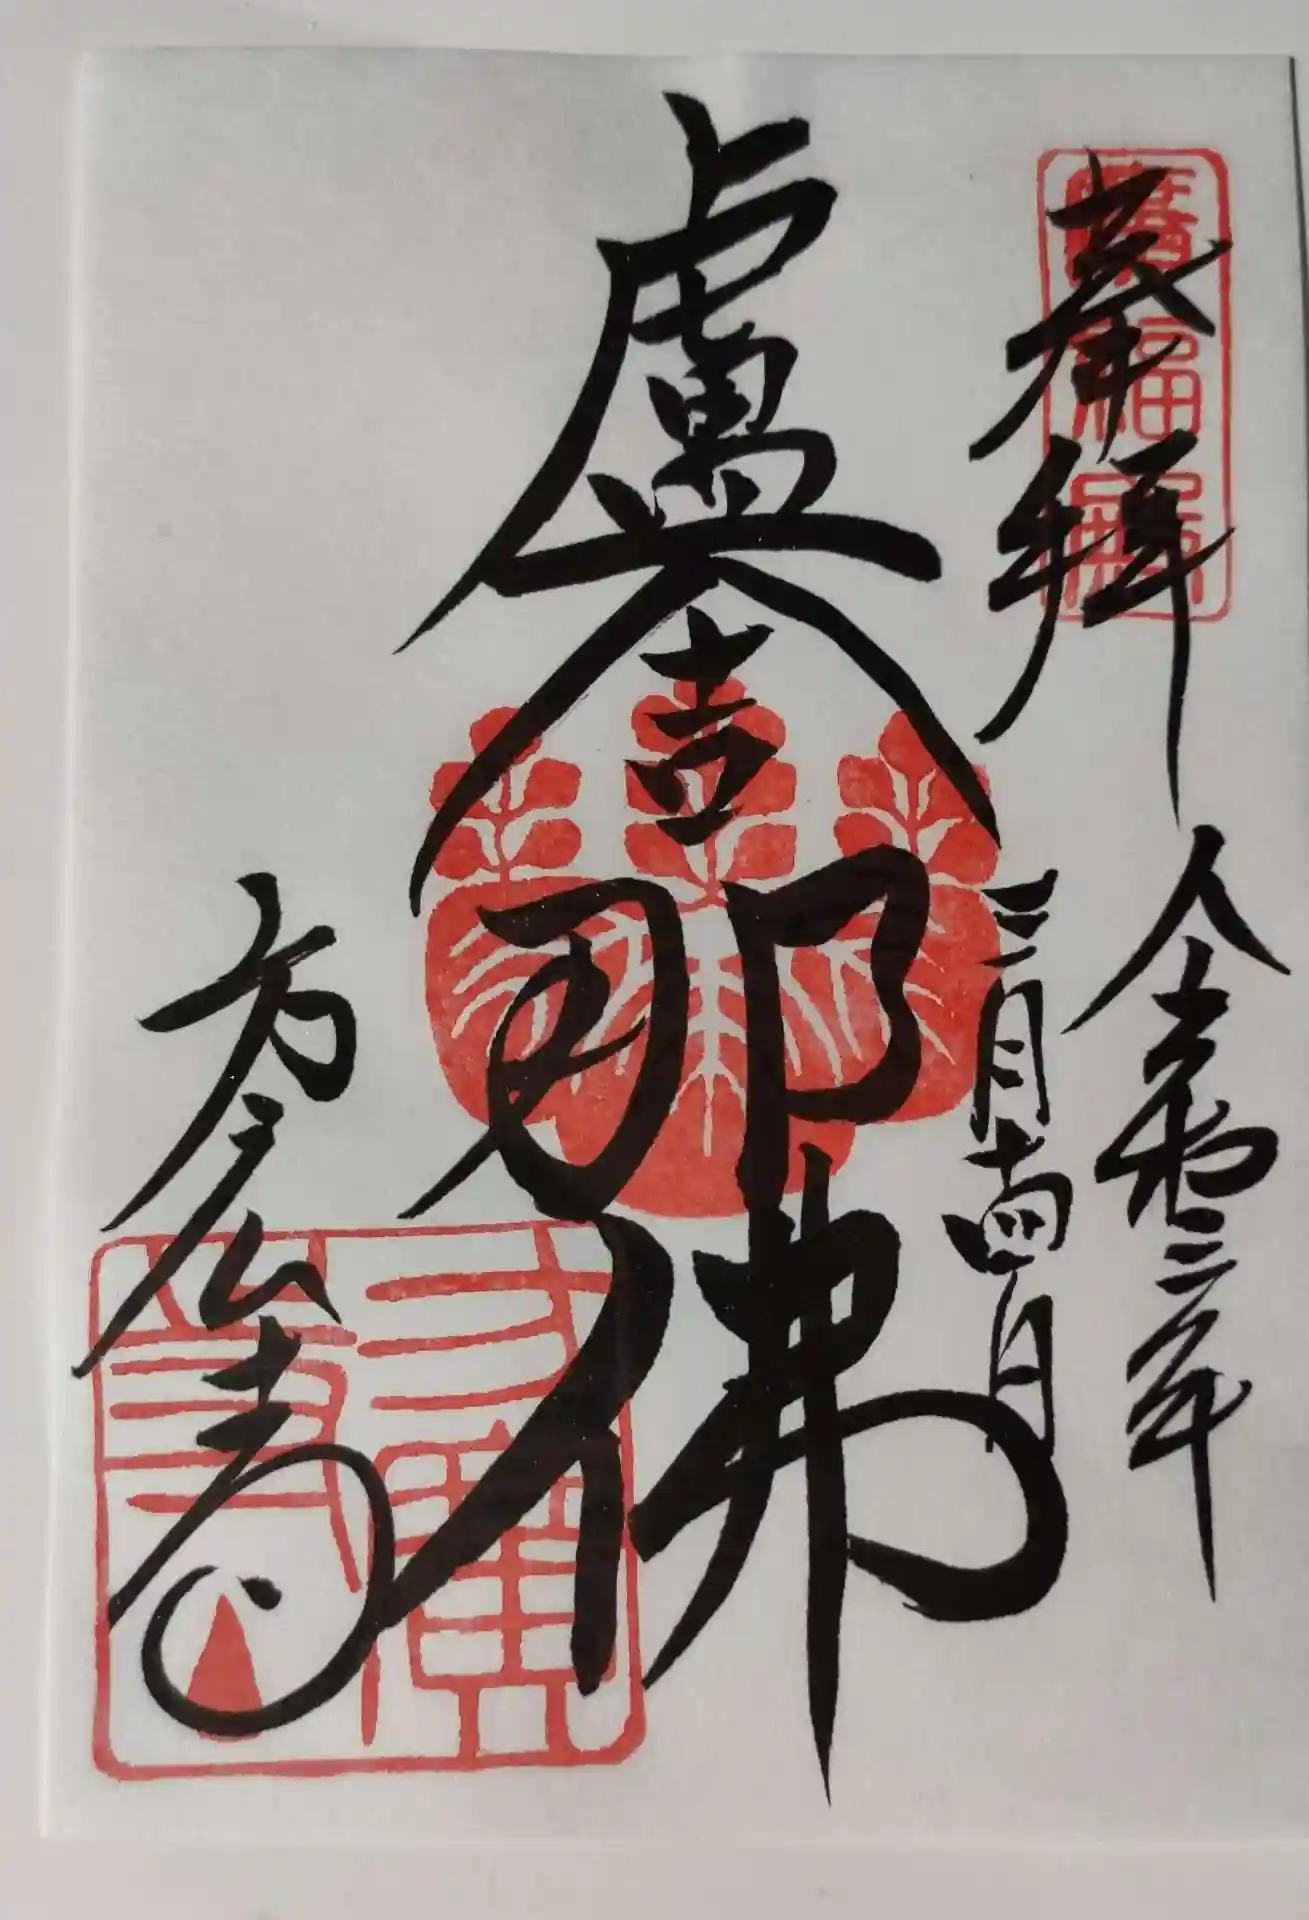 奉拝
令和三年
三月十四日
盧舎那佛
方広寺